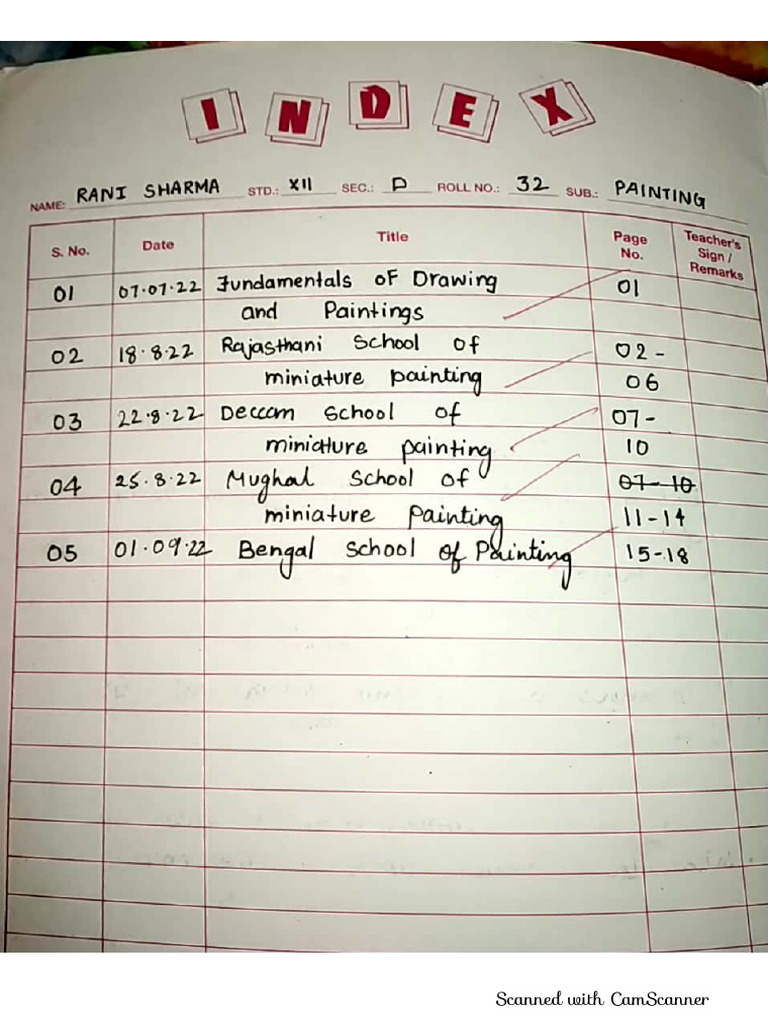 INDEX
NAME: RANI SHARMA STD.: XII SEC.: D ROLL NO.: 32 SUB.: PAINTING
S. No. Date Title Page No. Teacher's Sign / Remarks
01 07.07.22 Fundamentals of Drawing 01
and Paintings
02 18.8.22 Rajasthani School of 02-
miniature painting 06
03 22.8.22 Deccam School of 07-
miniature painting 10
04 25.8.22 Mughal School of 07-10
miniature painting 11-14
05 01.09.22 Bengal School of Painting 15-18
Scanned with CamScanner